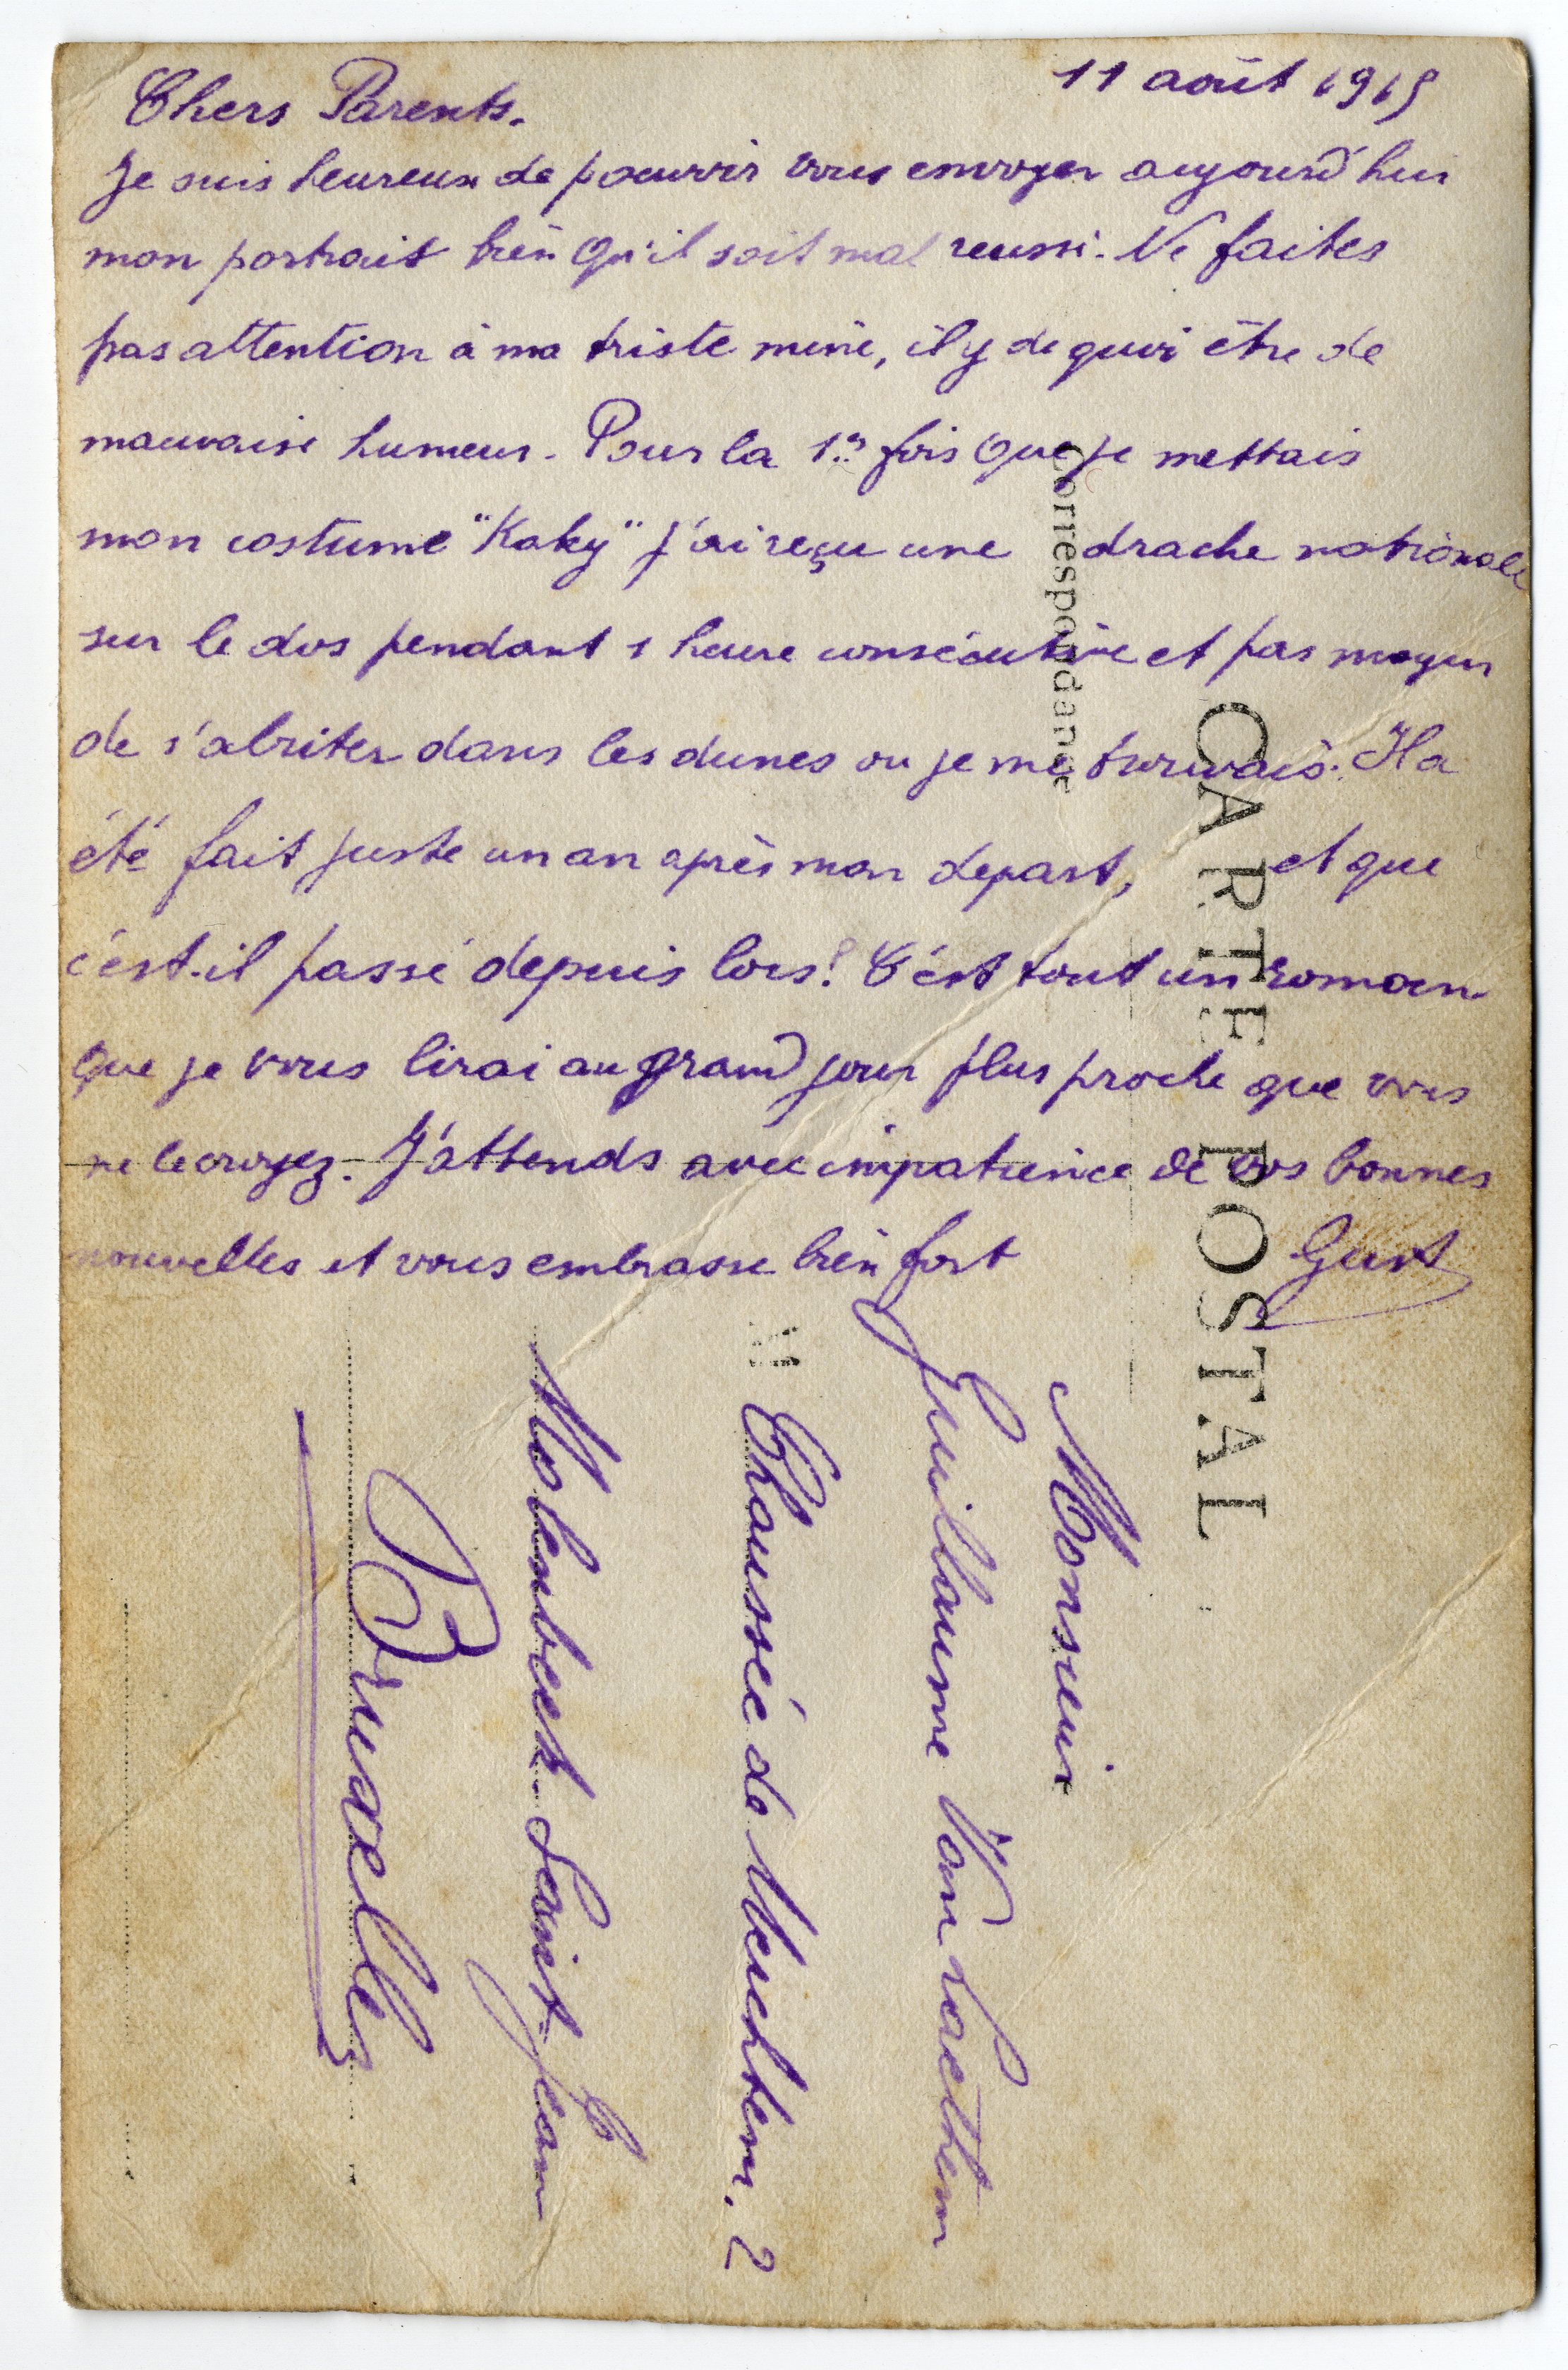 11 août 1915
Chers Parents.
Je suis heureux de pouvoir vous envoyer aujourd'hui
mon portrait bien qu'il soit mal reussi. Ne faites
pas attention à ma triste mine, il y de quoi être de
mauvaise humeur. Pour la 1re fois que je mettais
mon costume "Kaky" j'ai reçu une drache nationale
sur le dos pendant 1 heure consécutive et pas moyen
de s'abriter dans les dunes ou je me trouvais. Il a
été fait juste un an après mon depart, et que
c'est-il passé depuis lors! C'est tout un roman
que je vous lirai au grand jour plus proche que vous
ne le croyez. J'attends avec impatience de vos bonnes
nouvelles et vous embrasse bien fort
Gust
Correspondance
CARTE POSTAL
Monsieur
Guillaume Van Laethem
M Chaussée de Merchtem. 2
Molenbeek Saint-Jean
Bruxelles